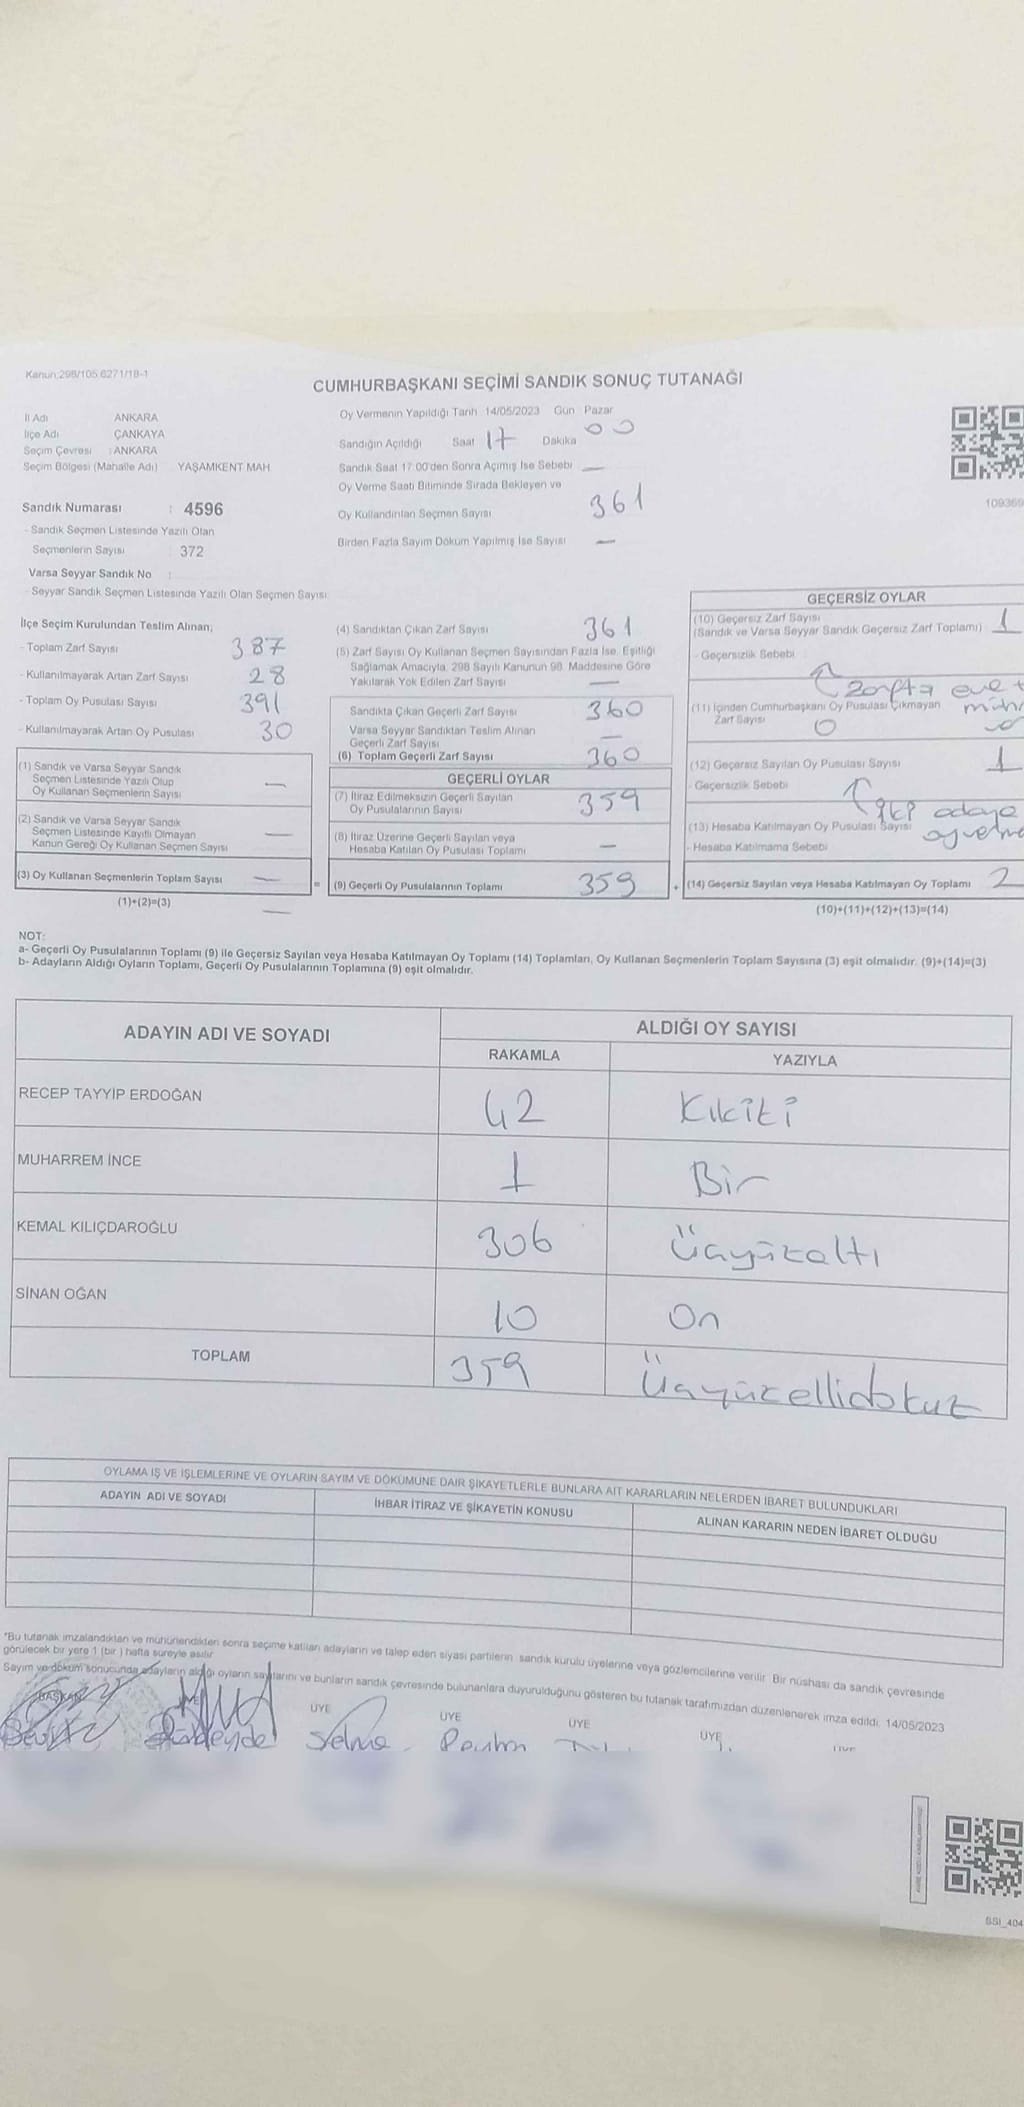 Kanun:298/105.6271/18-1
CUMHURBAŞKANI SEÇİMİ SANDIK SONUÇ TUTANAĞI
İl Adı ANKARA
İlçe Adı ÇANKAYA
Seçim Çevresi : ANKARA
Seçim Bölgesi (Mahalle Adı) YAŞAMKENT MAH
Sandık Numarası : 4596
- Sandık Seçmen Listesinde Yazılı Olan
Seçmenlerin Sayısı : 372
Varsa Seyyar Sandık No :
- Seyyar Sandık Seçmen Listesinde Yazılı Olan Seçmen Sayısı:
Oy Vermenin Yapıldığı Tarih 14/05/2023 Gün Pazar
Sandığın Açıldığı Saat 17 Dakika 00
Sandık Saat 17:00'den Sonra Açımış İse Sebebi —
Oy Verme Saati Bitiminde Sırada Bekleyen ve
Oy Kullandırılan Seçmen Sayısı 361
Birden Fazla Sayım Döküm Yapılmış İse Sayısı —
109369
İlçe Seçim Kurulundan Teslim Alınan;
- Toplam Zarf Sayısı 387
- Kullanılmayarak Artan Zarf Sayısı 28
- Toplam Oy Pusulası Sayısı 391
- Kullanılmayarak Artan Oy Pusulası 30
(1) Sandık ve Varsa Seyyar Sandık
Seçmen Listesinde Yazılı Olup
Oy Kullanan Seçmenlerin Sayısı —
(2) Sandık ve Varsa Seyyar Sandık
Seçmen Listesinde Kayıtlı Olmayan
Kanun Gereği Oy Kullanan Seçmen Sayısı —
(3) Oy Kullanan Seçmenlerin Toplam Sayısı —
(1)+(2)=(3) —
(4) Sandıktan Çıkan Zarf Sayısı 361
(5) Zarf Sayısı Oy Kullanan Seçmen Sayısından Fazla İse, Eşitliği
Sağlamak Amacıyla, 298 Sayılı Kanunun 98. Maddesine Göre
Yakılarak Yok Edilen Zarf Sayısı —
Sandıkta Çıkan Geçerli Zarf Sayısı 360
Varsa Seyyar Sandıktan Teslim Alınan
Geçerli Zarf Sayısı —
(6) Toplam Geçerli Zarf Sayısı 360
GEÇERLİ OYLAR
(7) İtiraz Edilmeksizin Geçerli Sayılan
Oy Pusulalarının Sayısı 359
(8) İtiraz Üzerine Geçerli Sayılan veya
Hesaba Katılan Oy Pusulası Toplamı —
= (9) Geçerli Oy Pusulalarının Toplamı 359 +
GEÇERSİZ OYLAR
(10) Geçersiz Zarf Sayısı
(Sandık ve Varsa Seyyar Sandık Geçersiz Zarf Toplamı) 1
- Geçersizlik Sebebi
Zarfta evet
(11) İçinden Cumhurbaşkanı Oy Pusulası Çıkmayan
Zarf Sayısı 0
(12) Geçersiz Sayılan Oy Pusulası Sayısı 1
- Geçersizlik Sebebi
iki adaya
(13) Hesaba Katılmayan Oy Pusulası Sayısı
- Hesaba Katılmama Sebebi
(14) Geçersiz Sayılan veya Hesaba Katılmayan Oy Toplamı 2
(10)+(11)+(12)+(13)=(14)
NOT:
a- Geçerli Oy Pusulalarının Toplamı (9) ile Geçersiz Sayılan veya Hesaba Katılmayan Oy Toplamı (14) Toplamları, Oy Kullanan Seçmenlerin Toplam Sayısına (3) eşit olmalıdır. (9)+(14)=(3)
b- Adayların Aldığı Oyların Toplamı, Geçerli Oy Pusulalarının Toplamına (9) eşit olmalıdır.
ADAYIN ADI VE SOYADI ALDIĞI OY SAYISI
RAKAMLA YAZIYLA
RECEP TAYYİP ERDOĞAN 42 Kıkiti
MUHARREM İNCE 1 Bir
KEMAL KILIÇDAROĞLU 306 Üçyüzaltı
SİNAN OĞAN 10 On
TOPLAM 359 Üçyüzellidokuz
OYLAMA İŞ VE İŞLEMLERİNE VE OYLARIN SAYIM VE DÖKÜMÜNE DAİR ŞİKAYETLERLE BUNLARA AİT KARARLARIN NELERDEN İBARET BULUNDUKLARI
ADAYIN ADI VE SOYADI İHBAR İTİRAZ VE ŞİKAYETİN KONUSU ALINAN KARARIN NEDEN İBARET OLDUĞU
*Bu tutanak imzalandıktan ve mühürlendikten sonra seçime katılan adayların ve talep eden siyasi partilerin sandık kurulu üyelerine veya gözlemcilerine verilir. Bir nüshası da sandık çevresinde
görülecek bir yere 1 (bir) hafta süreyle asılır
Sayım ve döküm sonucunda adayların aldığı oyların sayılarını ve bunların sandık çevresinde bulunanlara duyurulduğunu gösteren bu tutanak tarafımızdan düzenlenerek imza edildi. 14/05/2023
BAŞKAN ÜYE ÜYE ÜYE ÜYE ÜYE
Selma
SSI_404